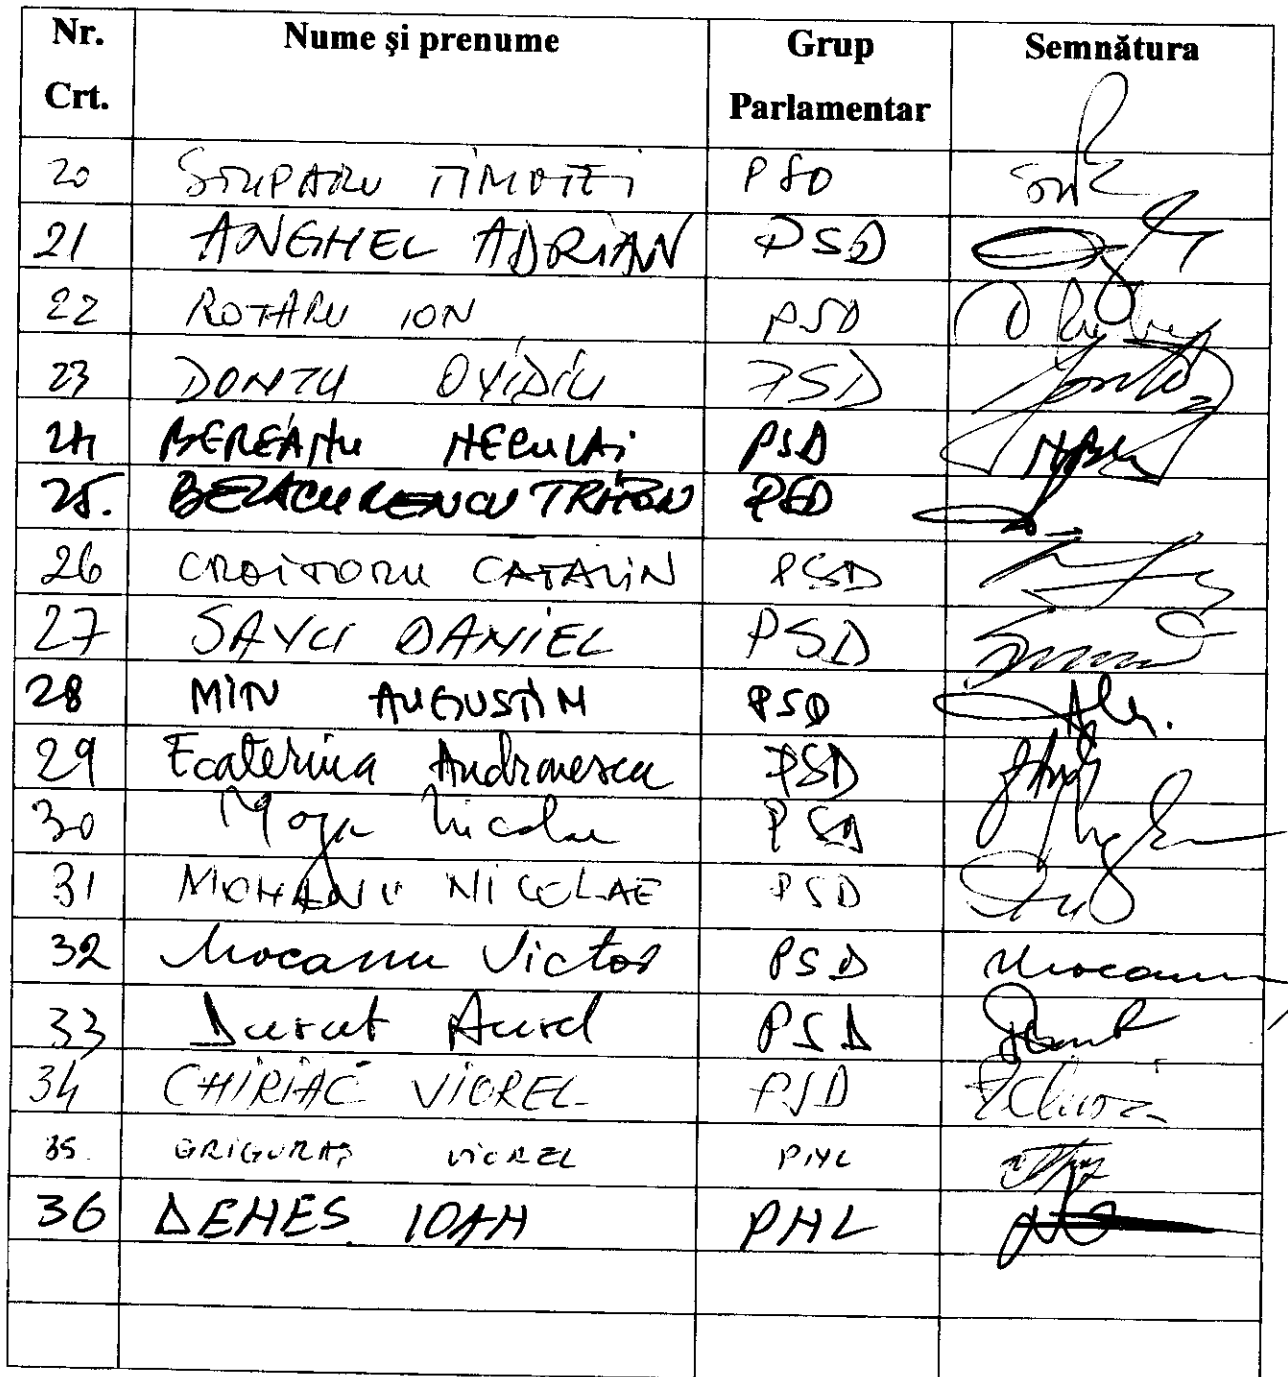 Nr. Crt. Nume şi prenume Grup Parlamentar Semnătura
20 STUPARU TIMOTEI PSD
21 ANGHEL ADRIAN PSD
22 ROTARU ION PSD
23 DONTU OVIDIU PSD
24 BEREANU NECULAI PSD
25. PSD
26 CROITORU CATALIN PSD
27 SAVU DANIEL PSD
28 MIN AUGUSTIN PSD
29 Ecaterina Andronescu PSD
30 Moga Nicolae PSD
31 NICOLAE PSD
32 Mocanu Victor PSD Mocanu
33 Durut Aurel PSD
34 CHIRIAC VIOREL PSD
35. GRIGORAŞ VIOREL PNL
36 DENEŞ IOAN PNL